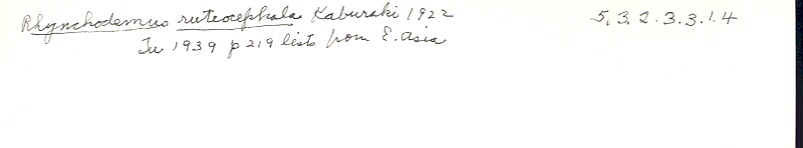 Rhynchodemus ruteocephala Kaburaki 1922 5.3.2.3.3.1.4
Tu 1939 p 219 lists from E. Asia